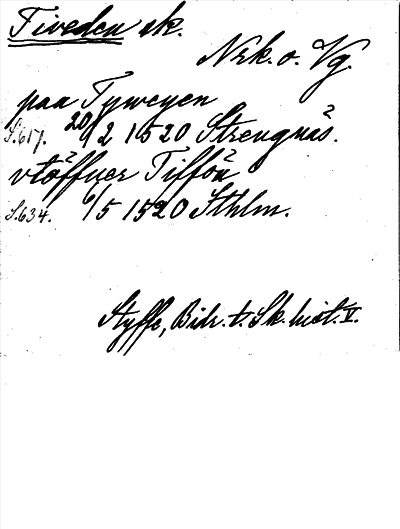 Tiveden sk.
Nrk. o. Vg.
paa Tyweyen
S. 617. 20/2 1520 Strengnäs.
vtöffuer Tiffön
S. 634. 6/5 1520 Sthlm.
Styffe, Bidr. t. Sk. hist. V.